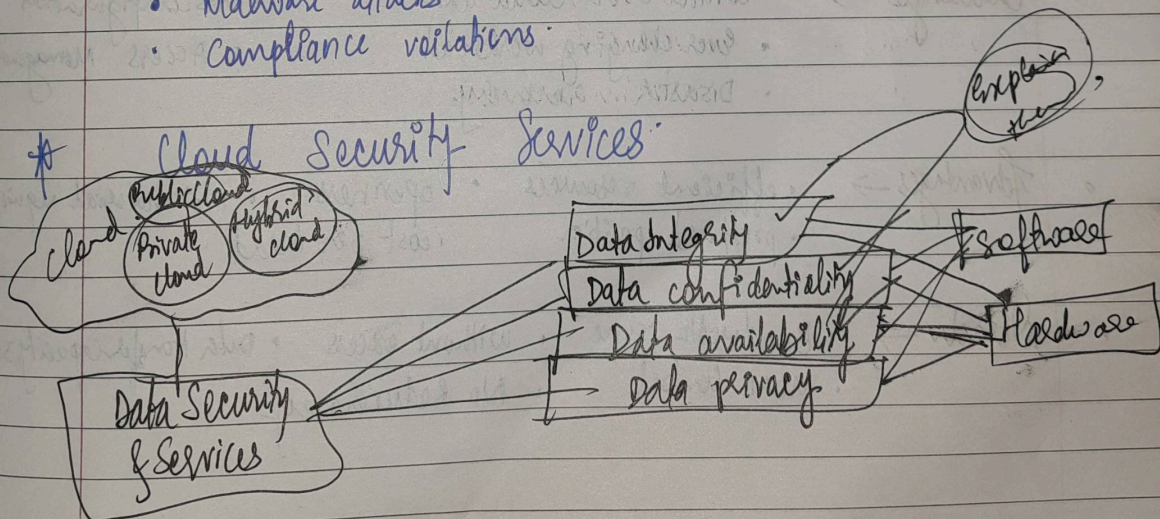 • Malware attacks
• Compliance voilations.
* Cloud Security Services.
Cloud.
Public Cloud
Private cloud
Hybrid cloud
Data Security
& Services
Data Integrity
Data confidentiality
Data availability
Data privacy
Software
Hardware
Explain them